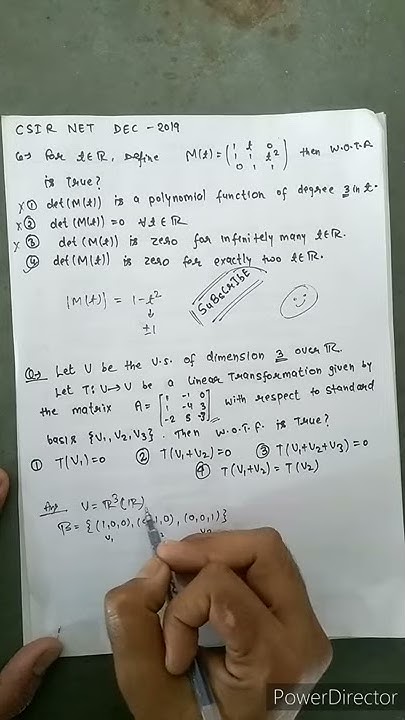 CSIR NET DEC - 2019
Q→ For t∈R, Define M(t) = (1 t 0 / 1 1 t² / 0 1 1) then W.O.T.F
is True?
x ① det(M(t)) is a polynomial function of degree 3 in t.
x ② det(M(t)) = 0 ∀ t ∈ R
x ③ det(M(t)) is zero for infinitely many t∈R.
④ det(M(t)) is zero for exactly two t∈R.
|M(t)| = 1-t²
↓
±1
SUBSCRIBE
Q→ Let V be the V.S. of dimension 3 over R.
Let T: V→V be a Linear Transformation given by
the matrix A = [1 -1 0 / 1 -4 3 / -2 5 -3] with respect to standard
basis {V₁, V₂, V₃}. Then W.O.T.F. is True?
① T(V₁)=0 ② T(V₁+V₂)=0 ③ T(V₁+V₂+V₃)=0
④ T(V₁+V₂) = T(V₂)
Ans V = R³(R)
B = {(1,0,0), 1,0), (0,0,1)}
V₁
PowerDirector